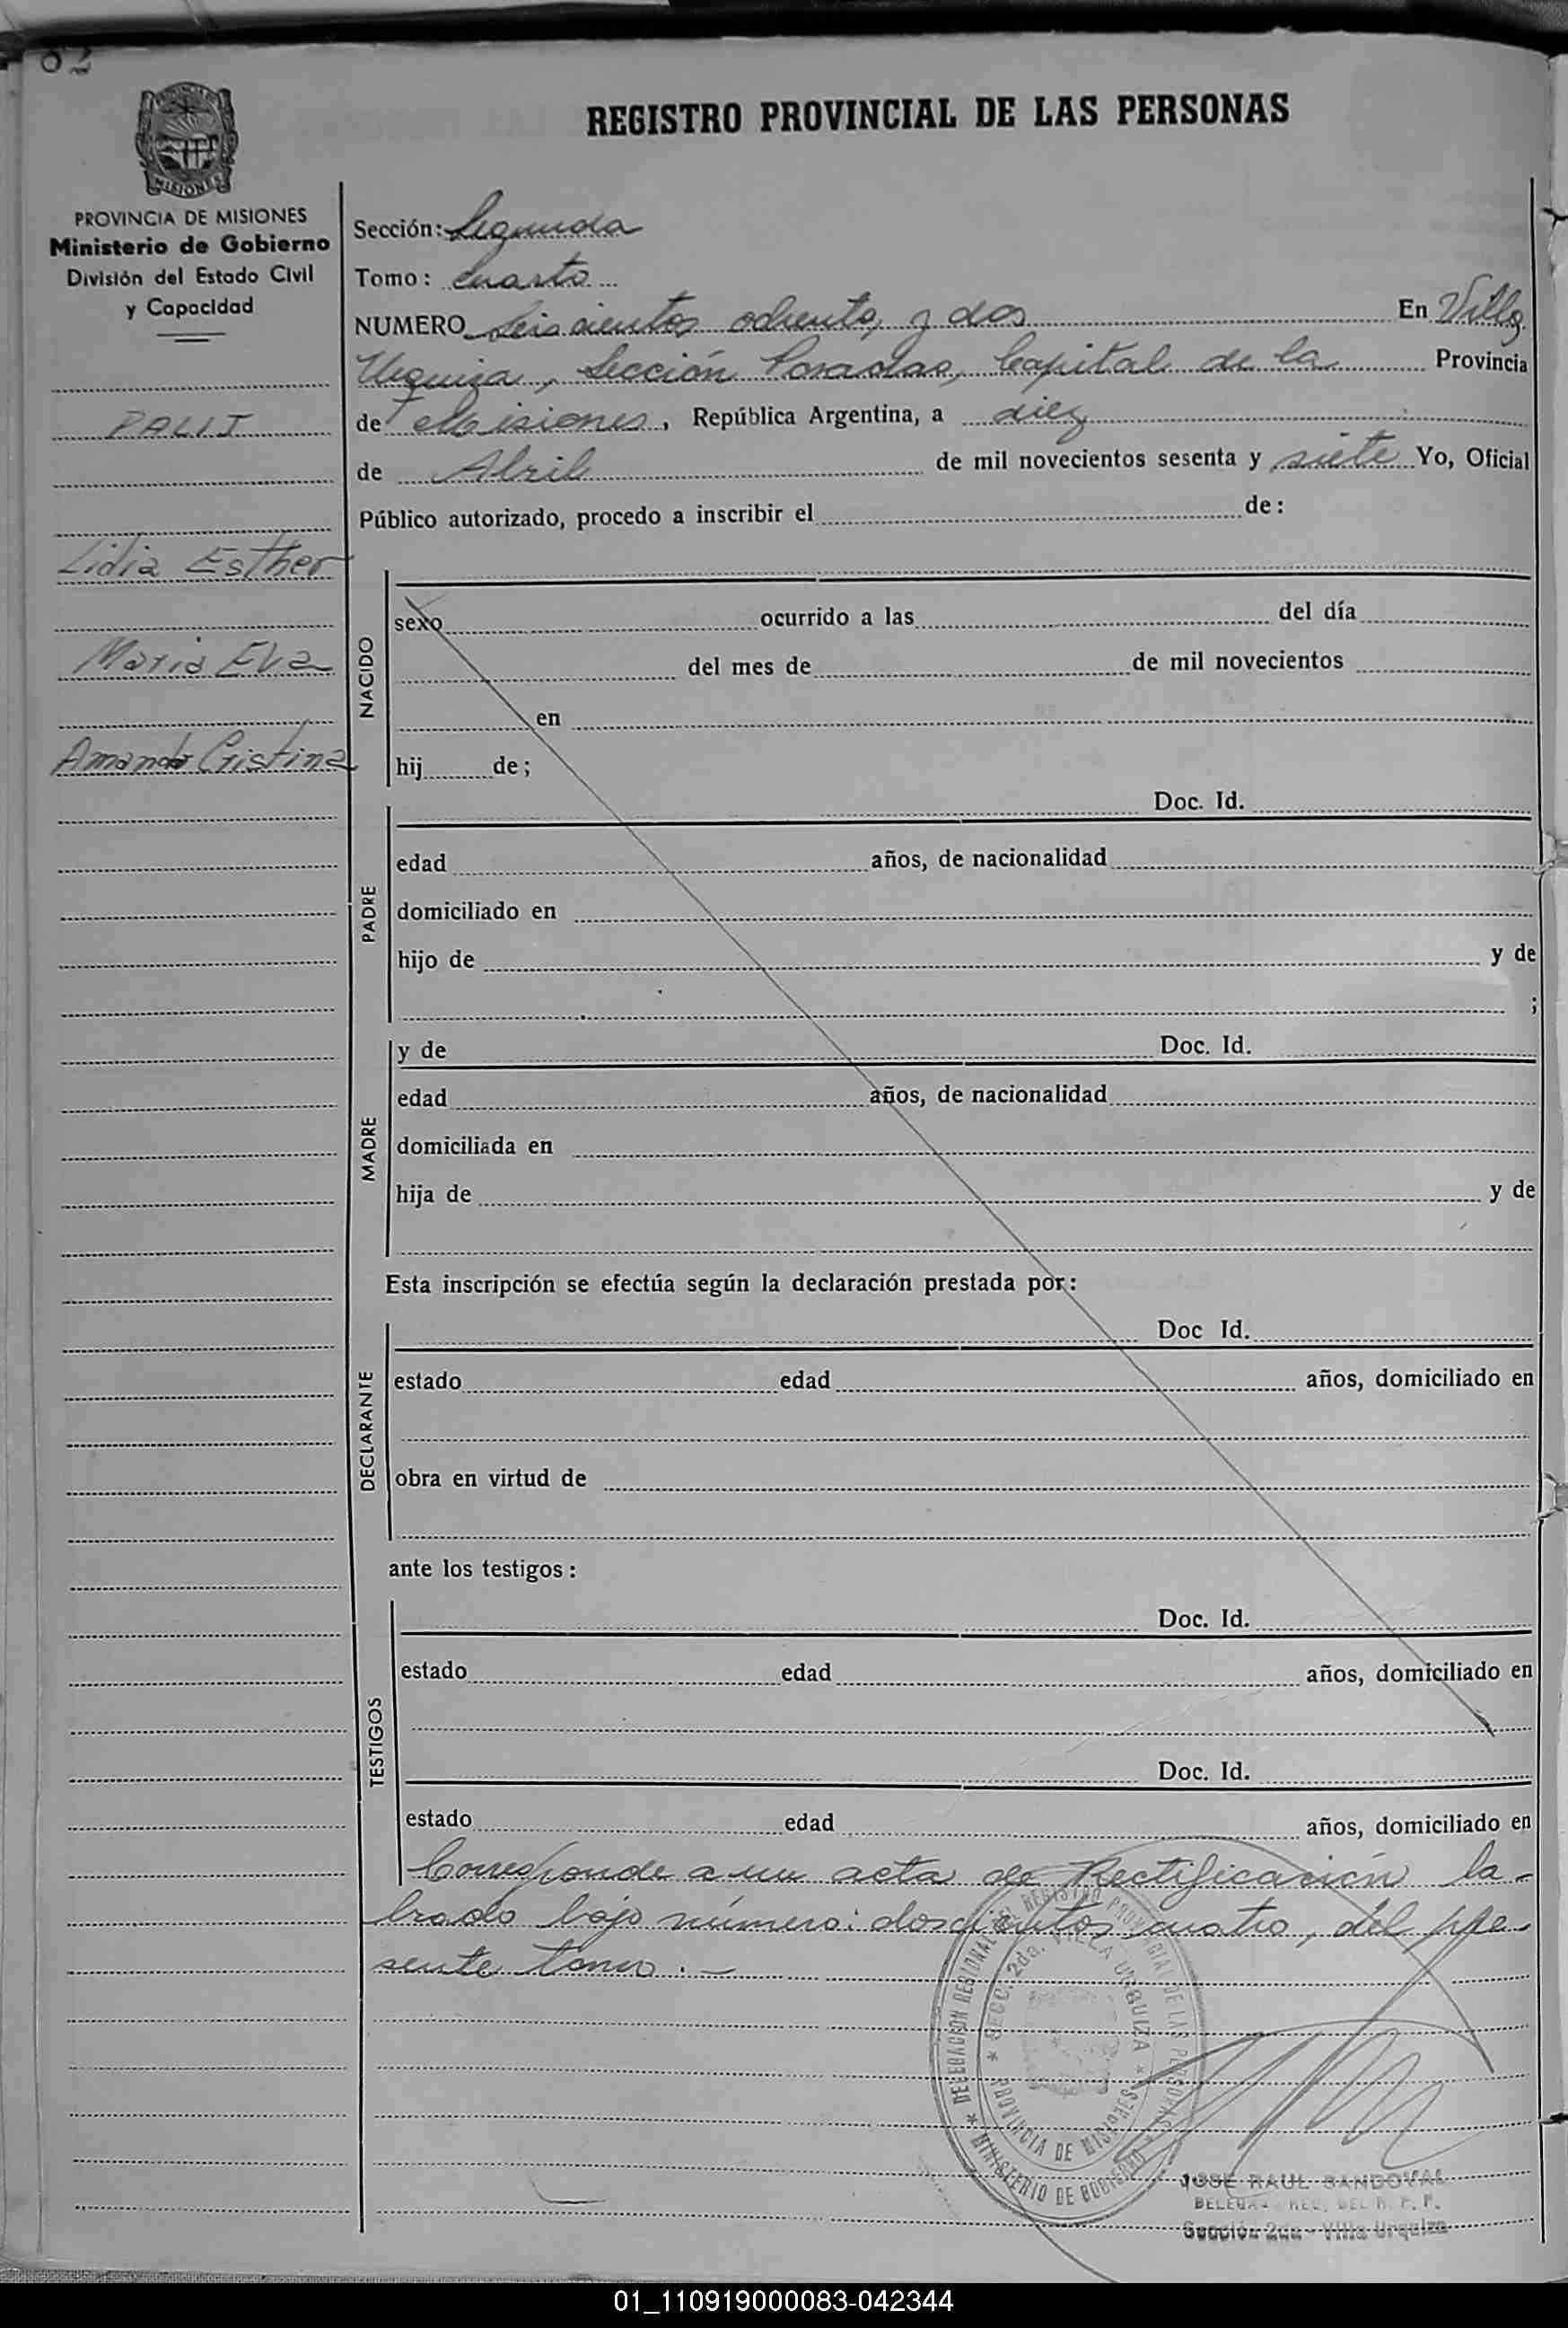 82
MISIONES
PROVINCIA DE MISIONES
Ministerio de Gobierno
División del Estado Civil
y Capacidad
PALIJ
Lidia Esther
Maria Eva
Amanda Cristina
REGISTRO PROVINCIAL DE LAS PERSONAS
Sección: Segunda
Tomo: Cuarto
NUMERO Seiscientos ochenta y dos En Villa
Urquiza, Sección Posadas, Capital de la Provincia
de Misiones, República Argentina, a diez
de Abril de mil novecientos sesenta y siete Yo, Oficial
Público autorizado, procedo a inscribir el de:
NACIDO
sexo ocurrido a las del día
del mes de de mil novecientos
en
hij de;
PADRE
Doc. Id.
edad años, de nacionalidad
domiciliado en
hijo de y de
;
MADRE
y de Doc. Id.
edad años, de nacionalidad
domiciliada en
hija de y de
Esta inscripción se efectúa según la declaración prestada por:
DECLARANTE
Doc Id.
estado edad años, domiciliado en
obra en virtud de
ante los testigos:
TESTIGOS
Doc. Id.
estado edad años, domiciliado en
Doc. Id.
estado edad años, domiciliado en
Corresponde a un acta de Rectificación la-
brado bajo número: doscientos cuatro, del pre-
sente tomo.-
* DELEGACION REGIONAL DEL REGISTRO PROVINCIAL DE LAS PERSONAS * MINISTERIO DE GOBIERNO
* SECC. 2da. VILLA URQUIZA * PROVINCIA DE MISIONES
JOSE RAUL SANDOVAL
Sección 2da - Villa Urquiza
01_110919000083-042344